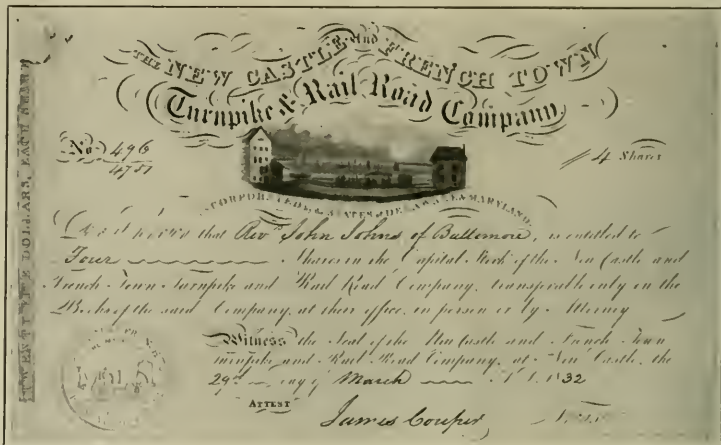 THE NEW CASTLE and FRENCH TOWN
Turnpike & Rail Road Company
No. 496
4 Shares
INCORPORATED by the STATES of DELAWARE & MARYLAND
Be it known that Rev. John Johns of Baltimore, is entitled to
Four Shares in the Capital Stock of the New Castle and
French Town Turnpike and Rail Road Company, transferable only in the
Books of the said Company, at their office, in person or by Attorney
Witness the Seal of the New Castle and French Town
Turnpike and Rail Road Company, at New Castle, the
29th day of March A.D. 1832
ATTEST
James Couper
TWENTY FIVE DOLLARS, EACH SHARE